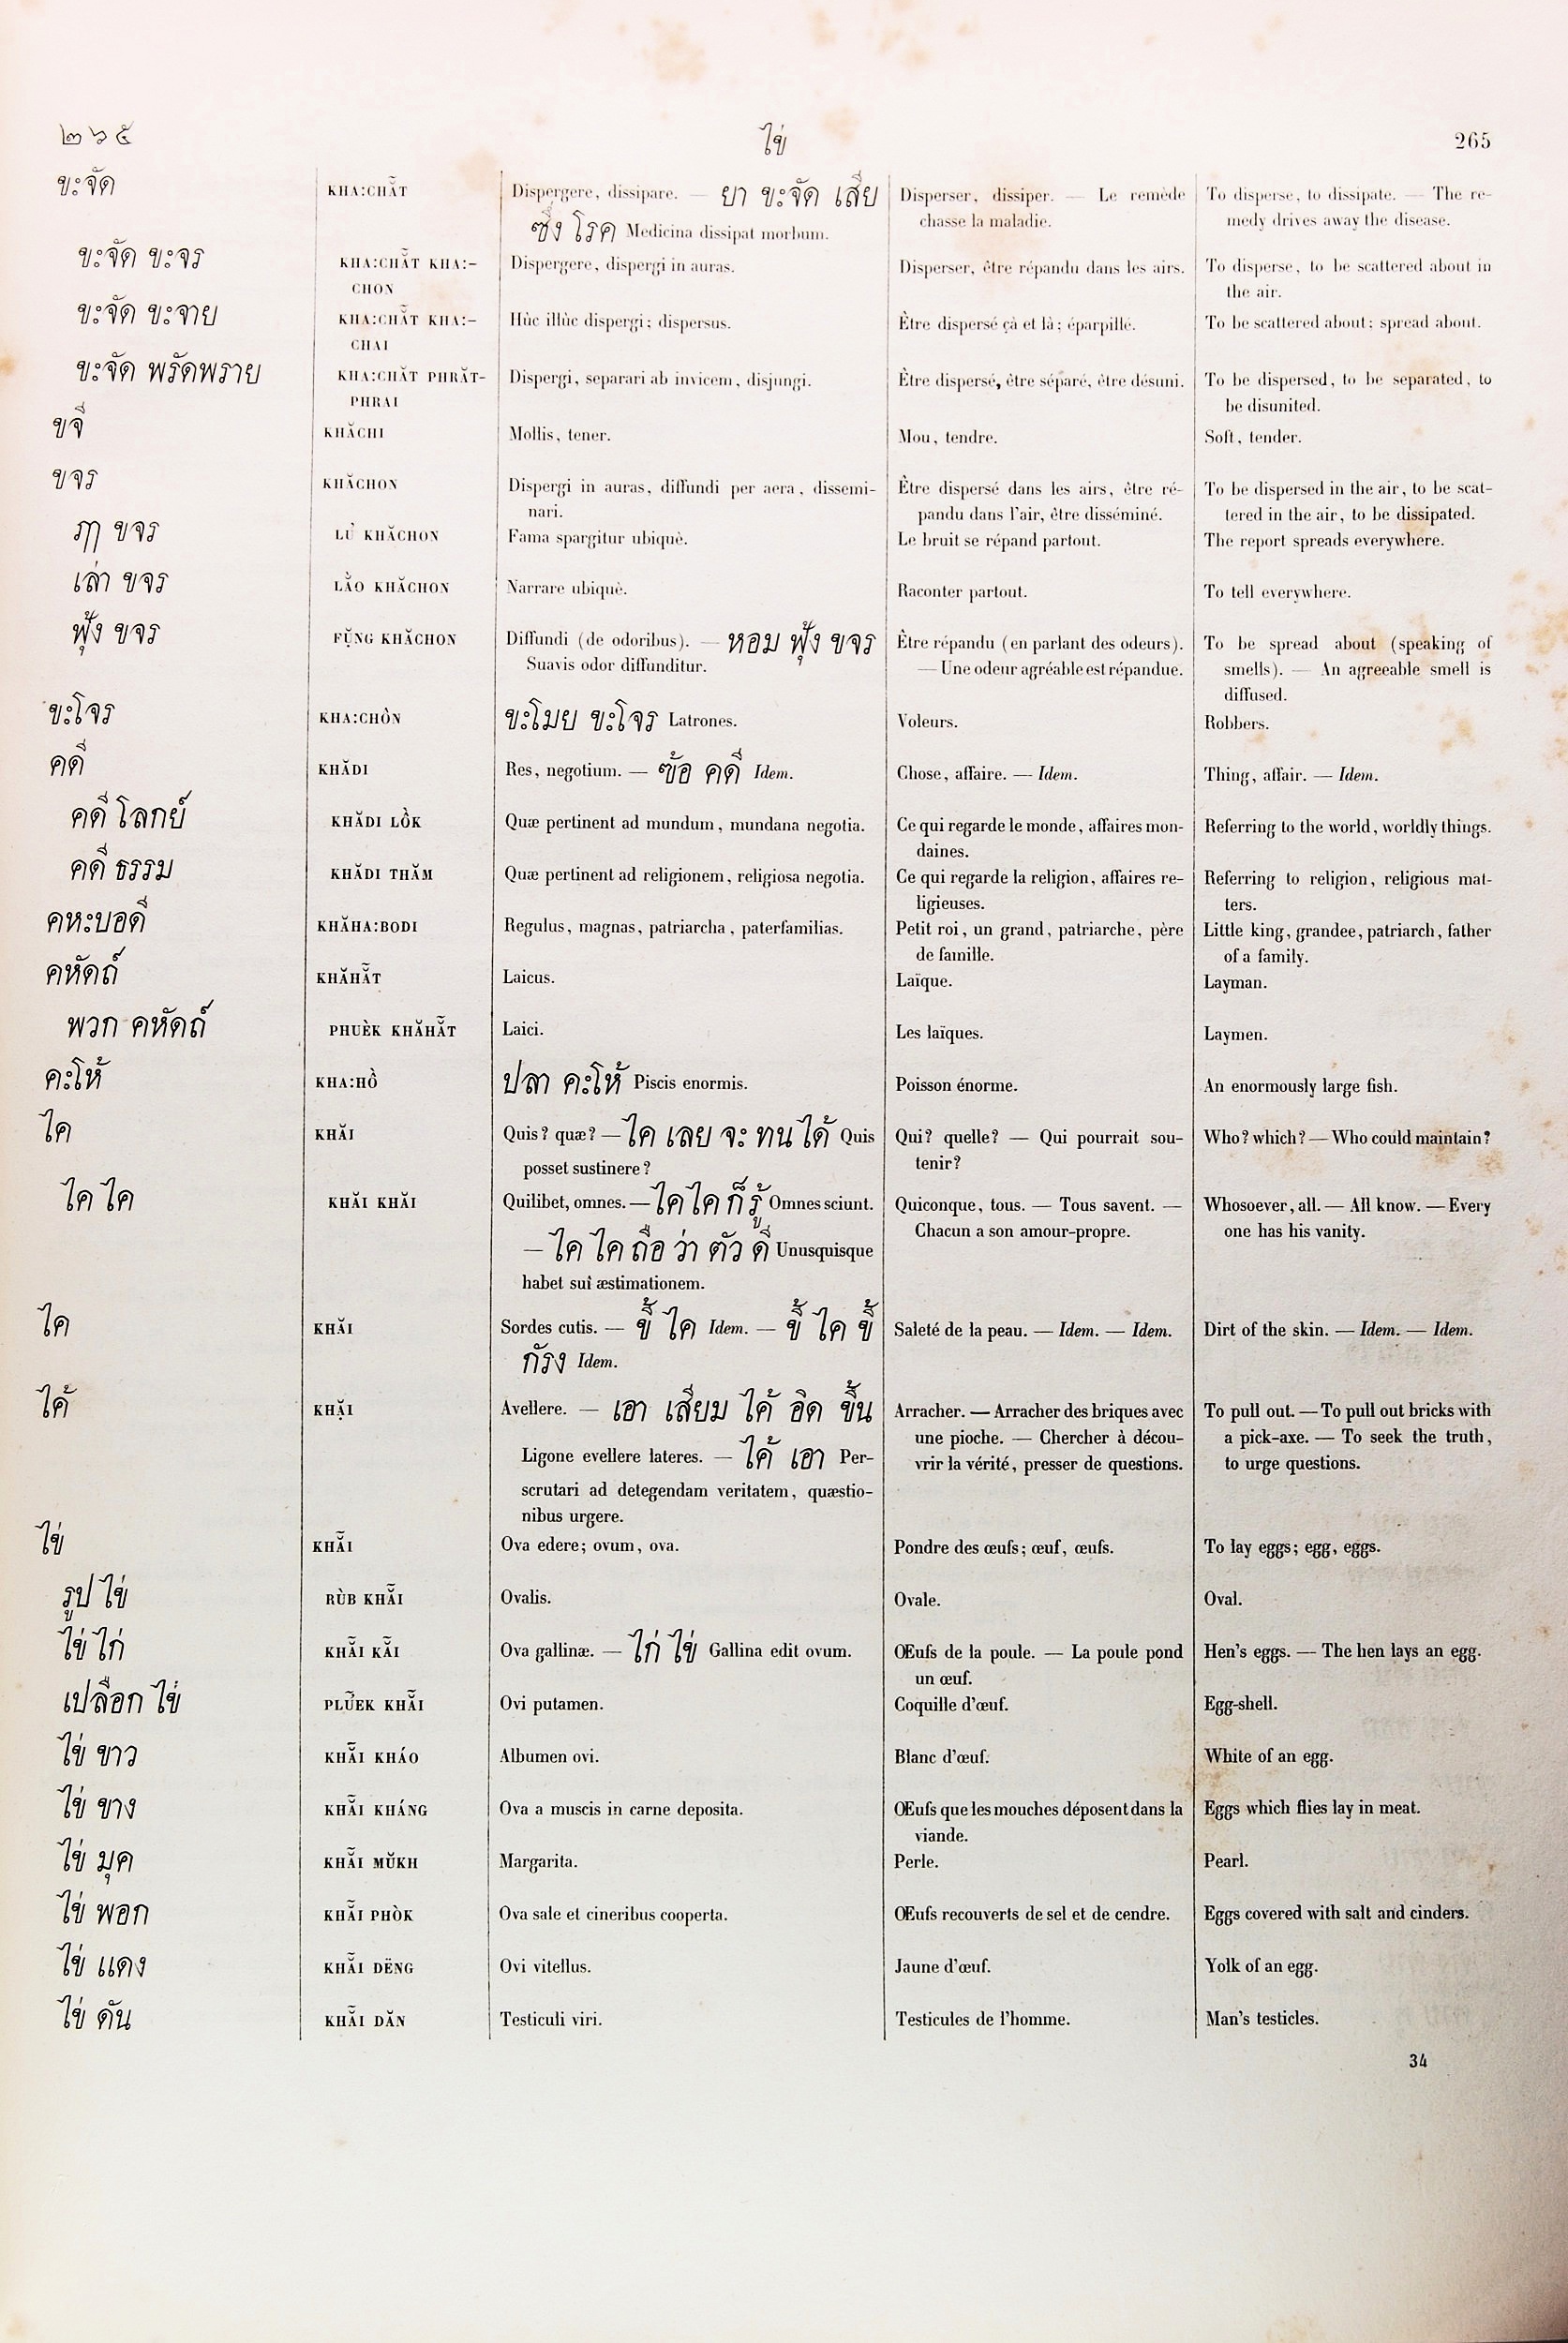 ๒๖๕ ไข่ 265
ขะจัด KHA:CHẮT Dispergere, dissipare. — ยา ขะจัด เสีย Disperser, dissiper. — Le remède To disperse, to dissipate. — The re-
ซึ่ง โรค Medicina dissipat morbum. chasse la maladie. medy drives away the disease.
ขะจัด ขะจร KHA:CHẮT KHA:- Dispergere, dispergi in auras. Disperser, être répandu dans les airs. To disperse, to be scattered about in
CHON the air.
ขะจัด ขะจาย KHA:CHẮT KHA:- Hùc illùc dispergi; dispersus. Être dispersé çà et là; éparpillé. To be scattered about; spread about.
CHAI
ขะจัด พรัดพราย KHA:CHĂT PHRĂT- Dispergi, separari ab invicem, disjungi. Être dispersé, être séparé, être désuni. To be dispersed, to be separated, to
PHRAI be disunited.
ขจี KHĂCHI Mollis, tener. Mou, tendre. Soft, tender.
ขจร KHĂCHON Dispergi in auras, diffundi per aera, dissemi- Être dispersé dans les airs, être ré- To be dispersed in the air, to be scat-
nari. pandu dans l'air, être disséminé. tered in the air, to be dissipated.
ฦๅ ขจร LU KHĂCHON Fama spargitur ubiquè. Le bruit se répand partout. The report spreads everywhere.
เล่า ขจร LÀO KHĂCHON Narrare ubiquè. Raconter partout. To tell everywhere.
ฟุ้ง ขจร FŬNG KHĂCHON Diffundi (de odoribus). — หอม ฟุ้ง ขจร Être répandu (en parlant des odeurs). To be spread about (speaking of
Suavis odor diffunditur. — Une odeur agréable est répandue. smells). — An agreeable smell is
diffused.
ขะโจร KHA:CHÒN ขะโมย ขะโจร Latrones. Voleurs. Robbers.
คดี KHĂDI Res, negotium. — ข้อ คดี Idem. Chose, affaire. — Idem. Thing, affair. — Idem.
คดี โลกย์ KHĂDI LÔK Quæ pertinent ad mundum, mundana negotia. Ce qui regarde le monde, affaires mon- Referring to the world, worldly things.
daines.
คดี ธรรม KHĂDI THĂM Quæ pertinent ad religionem, religiosa negotia. Ce qui regarde la religion, affaires re- Referring to religion, religious mat-
ligieuses. ters.
คหะบอดี KHĂHA:BODI Regulus, magnas, patriarcha, paterfamilias. Petit roi, un grand, patriarche, père Little king, grandee, patriarch, father
de famille. of a family.
คหัดถ์ KHĂHẮT Laicus. Laïque. Layman.
พวก คหัดถ์ PHUÈK KHĂHẮT Laici. Les laïques. Laymen.
คะโห้ KHA:HÔ ปลา คะโห้ Piscis enormis. Poisson énorme. An enormously large fish.
ไค KHĂI Quis? quæ? — ไค เลย จะ ทน ได้ Quis Qui? quelle? — Qui pourrait sou- Who? which? — Who could maintain?
posset sustinere? tenir?
ไค ไค KHĂI KHĂI Quilibet, omnes. — ไค ไค ก็ รู้ Omnes sciunt. Quiconque, tous. — Tous savent. — Whosoever, all. — All know. — Every
— ไค ไค ถือ ว่า ตัว ดี Unusquisque Chacun a son amour-propre. one has his vanity.
habet sui æstimationem.
ไค KHĂI Sordes cutis. — ขี้ ไค Idem. — ขี้ ไค ขี้ Saleté de la peau. — Idem. — Idem. Dirt of the skin. — Idem. — Idem.
กัรง Idem.
ไค้ KHĂI Avellere. — เอา เสียม ไค้ อิด ขึ้น Arracher. — Arracher des briques avec To pull out. — To pull out bricks with
Ligone evellere lateres. — ไค้ เอา Per- une pioche. — Chercher à décou- a pick-axe. — To seek the truth,
scrutari ad detegendam veritatem, quæstio- vrir la vérité, presser de questions. to urge questions.
nibus urgere.
ไข่ KHẮI Ova edere; ovum, ova. Pondre des œufs; œuf, œufs. To lay eggs; egg, eggs.
รูป ไข่ RÙB KHẮI Ovalis. Ovale. Oval.
ไข่ ไก่ KHẮI KẮI Ova gallinæ. — ไก่ ไข่ Gallina edit ovum. OEufs de la poule. — La poule pond Hen's eggs. — The hen lays an egg.
un œuf.
เปลือก ไข่ PLƯEK KHẮI Ovi putamen. Coquille d'œuf. Egg-shell.
ไข่ ขาว KHẮI KHÁO Albumen ovi. Blanc d'œuf. White of an egg.
ไข่ ขาง KHẮI KHÁNG Ova a muscis in carne deposita. OEufs que les mouches déposent dans la Eggs which flies lay in meat.
viande.
ไข่ มุค KHẮI MŬKH Margarita. Perle. Pearl.
ไข่ พอก KHẮI PHÒK Ova sale et cineribus cooperta. OEufs recouverts de sel et de cendre. Eggs covered with salt and cinders.
ไข่ แดง KHẮI DËNG Ovi vitellus. Jaune d'œuf. Yolk of an egg.
ไข่ ดัน KHẮI DĂN Testiculi viri. Testicules de l'homme. Man's testicles.
34